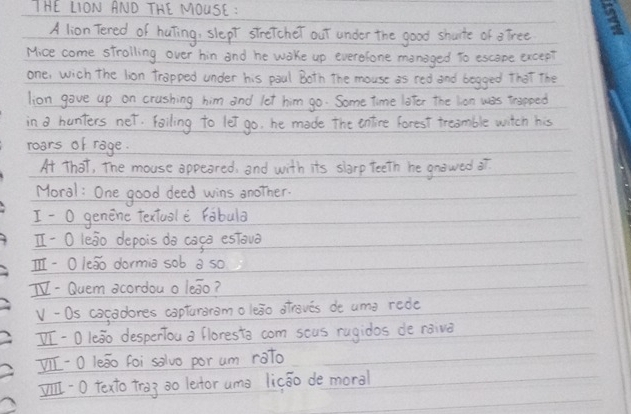 THE LION AND THE MOUSE:
A lion Tered of huting, slept stretchet out under the good shurte of a Tree
Mice come strolling over hin and he wake up everofone managed To escape except
one, wich the lion trapped under his paul Both The mouse as red and begged That The
lion gave up on crashing him and let him go. Some Time later The lion was trapped
in a hunters net. Failing to let go, he made The entire forest treamble witch his
roars of rage.
At That, The mouse appeared, and with its slarp teeTh he gnawed at
Moral: One good deed wins another.
I - O genêne textual é fábula
II - O leão depois da caça estava
III - O leão dormia sob a so
IV - Quem acordou o leão?
V - Os caçadores capturaram o leão através de uma rede
VI - O leão despertou a floresta com seus rugidos de raiva
VII - O leão foi salvo por um rato
VIII - O texto traz ao leitor uma lição de moral